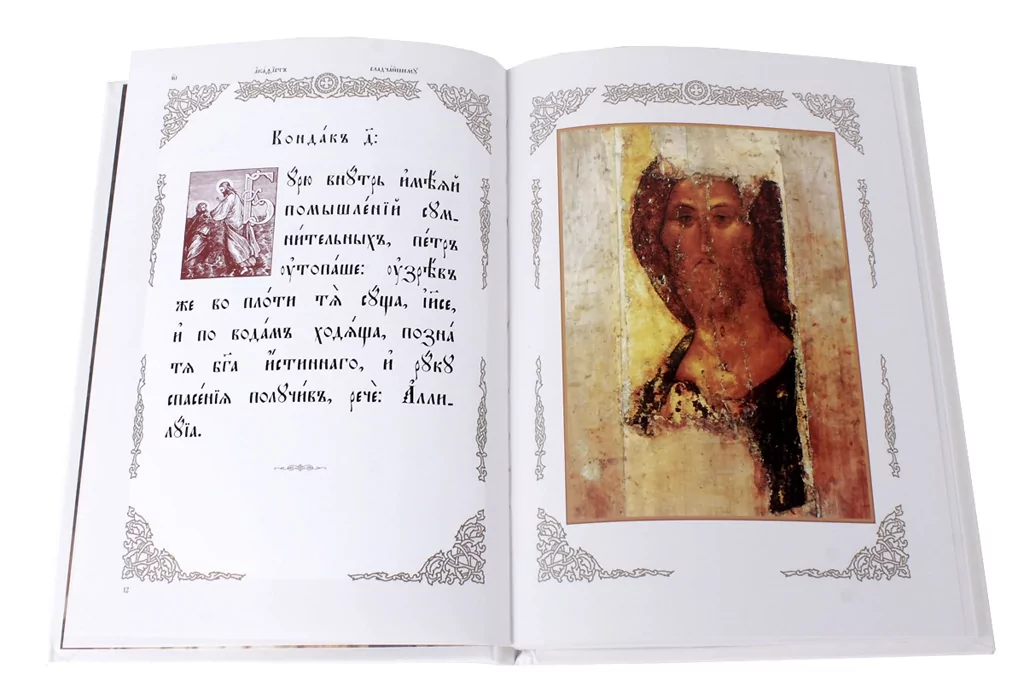 а҆ка́ѳїстъ сладча́йшемꙋ
Конда́къ д҃:
Бꙋ́рю внꙋ́трь и҆мѣ́ѧй
помышле́нїй сꙋм_
ни́тельныхъ, пе́тръ
ᲂу҆топа́ше: ᲂу҆зрѣ́въ
же во пло́ти тѧ̀ сꙋ́ща, і҆и҃се,
и҆ по вода́мъ ходѧ́ща, позна́
тѧ бг҃а и҆́стиннаго, и҆ рꙋ́кꙋ
спасе́нїѧ полꙋчи́въ, речѐ: А҆лли_
лꙋ́їа.
12